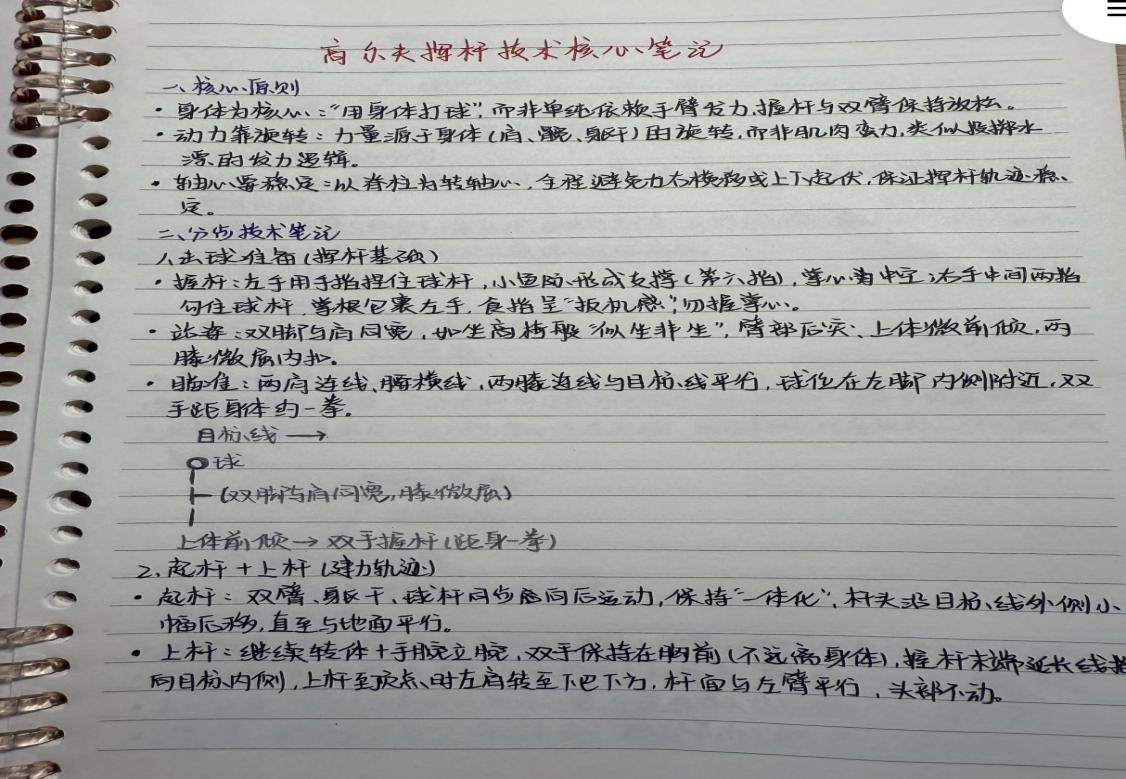 高尔夫挥杆技术核心笔记
一、核心原则
·身体为核心:“用身体打球”,而非单纯依赖手臂发力,握杆与双臂保持放松。
·动力靠旋转:力量源于身体(肩、髋、躯干)的旋转,而非肌肉蛮力,类似投掷水
漂的发力逻辑。
·轴心要稳定:以脊柱为转轴心,全程避免左右横移或上下起伏,保证挥杆轨迹稳
定。
二、分步技术笔记
1.击球准备(挥杆基础)
·握杆:左手用手指捏住球杆,小鱼际形成支撑(第六指),掌心自中空;右手中间两指
勾住球杆,掌根包裹左手,食指呈“扳机感”,勿握掌心。
·站姿:双脚与肩同宽,如坐高椅般“似坐非坐”,臀部后突、上体微前倾,两
膝微屈内扣。
·瞄准:两肩连线、腰横线,两膝连线与目标线平行,球位在左脚内侧附近,双
手距身体约一拳。
目标线→
球
(双脚与肩同宽,膝微屈)
上体前倾→双手握杆(距身一拳)
2.起杆+上杆(建力轨迹)
·起杆:双臂、躯干、球杆同步向后运动,保持“一体化”,杆头沿目标线外侧小
幅后移,直至与地面平行。
·上杆:继续转体+手腕立腕,双手保持在胸前(不远离身体),握杆末端延长线指
向目标内侧,上杆至顶点时左肩转至下巴下方,杆面与左臂平行,头部不动。